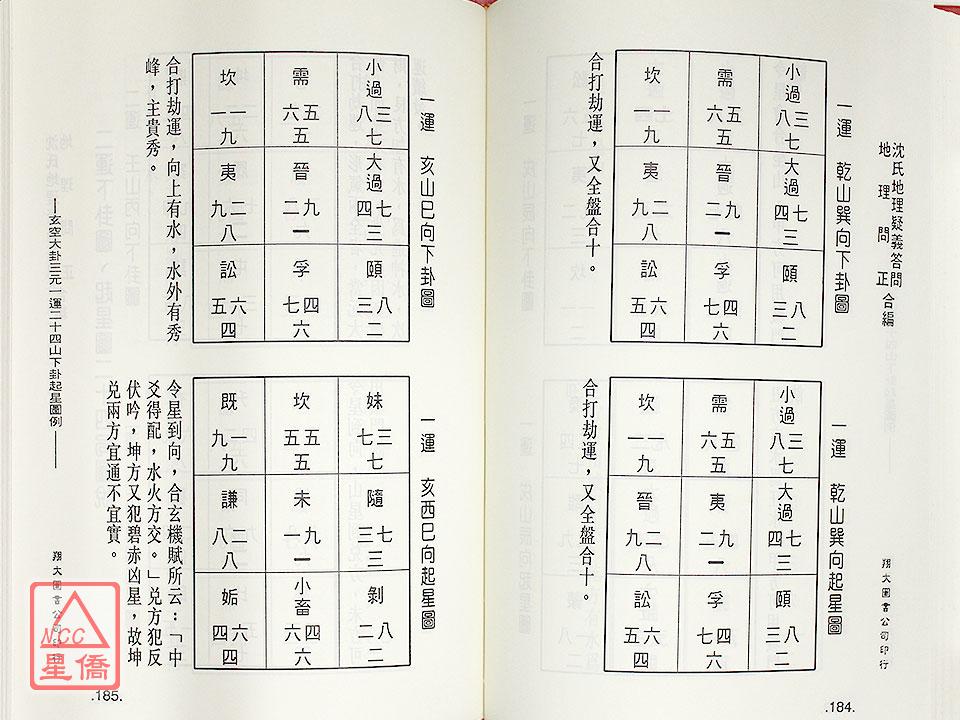 沈氏地理疑義答問
地理問正
合編
翔大圖書公司印行
一運 乾山巽向下卦圖
坎 需 小過
一一 六五 八三
九 五 七
夷 晉 大過
九二 二九 四七
八 一 三
訟 孚 頤
五六 七四 三八
四 六 二
合打劫運，又全盤合十。
一運 乾山巽向起星圖
坎 需 小過
一一 六五 八三
九 五 七
晉 夷 大過
九二 二九 四七
八 一 三
訟 孚 頤
五六 七四 三八
四 六 二
合打劫運，又全盤合十。
.184.
一運 亥山巳向下卦圖
坎 需 小過
一一 六五 八三
九 五 七
夷 晉 大過
九二 二九 四七
八 一 三
訟 孚 頤
五六 七四 三八
四 六 二
合打劫運，向上有水，水外有秀
峰，主貴秀。
一運 亥酉巳向起星圖
既 坎 妹
九一 五五 七三
九 五 七
謙 未 隨
八二 一九 三三
八 一 三
姤 小畜 剝
四六 六四 二八
四 六 二
令星到向，合玄機賦所云：「中
爻得配，水火方交。」兌方犯反
伏吟，坤方又犯碧赤凶星，故坤
兌兩方宜通不宜實。
玄空大卦三元一運二十四山下卦起星圖例
翔大圖書公司印行
.185.
NCC
星僑